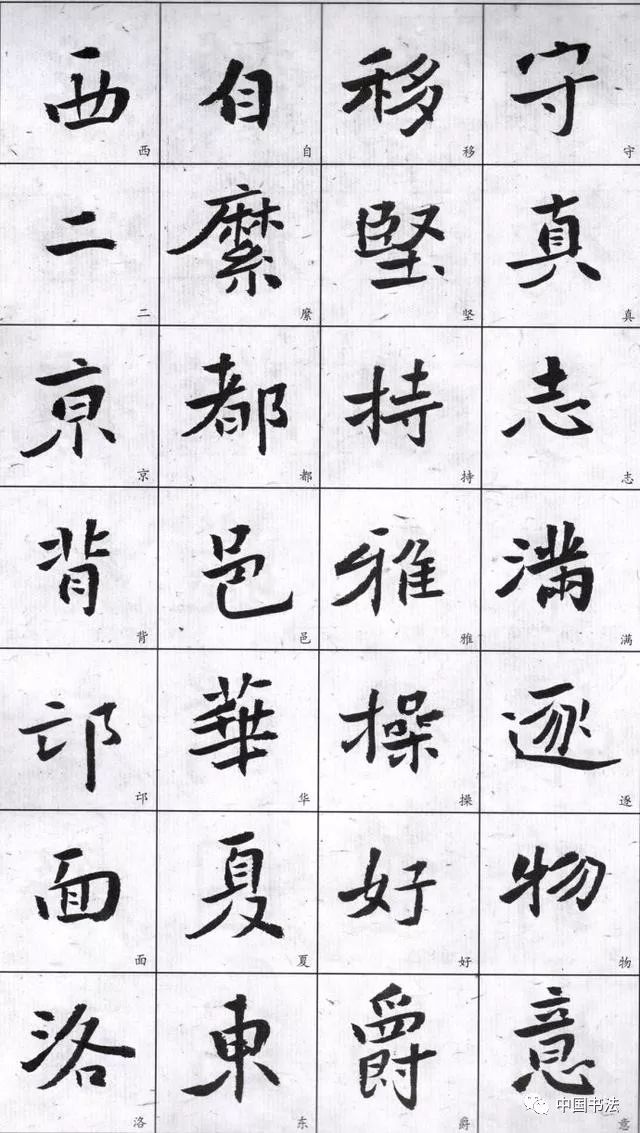 守真志滿逐物意
守真志满逐物意
移堅持雅操好爵
移坚持雅操好爵
自縻都邑華夏東
自縻都邑华夏东
西二京背邙面洛
西二京背邙面洛
中国书法